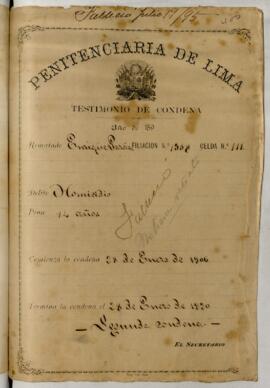 Falleció Julio
PENITENCIARIA DE LIMA
TESTIMONIO DE CONDENA
Año de 190
Rematado Enrique FILIACION N.º CELDA N.º 111
Delito Homicidio
Falleció
Pena 14 años
Comienza la condena 28 de Enero de 1906
Termina la condena el 28 de Enero de 1920
Segunda condena
EL SECRETARIO